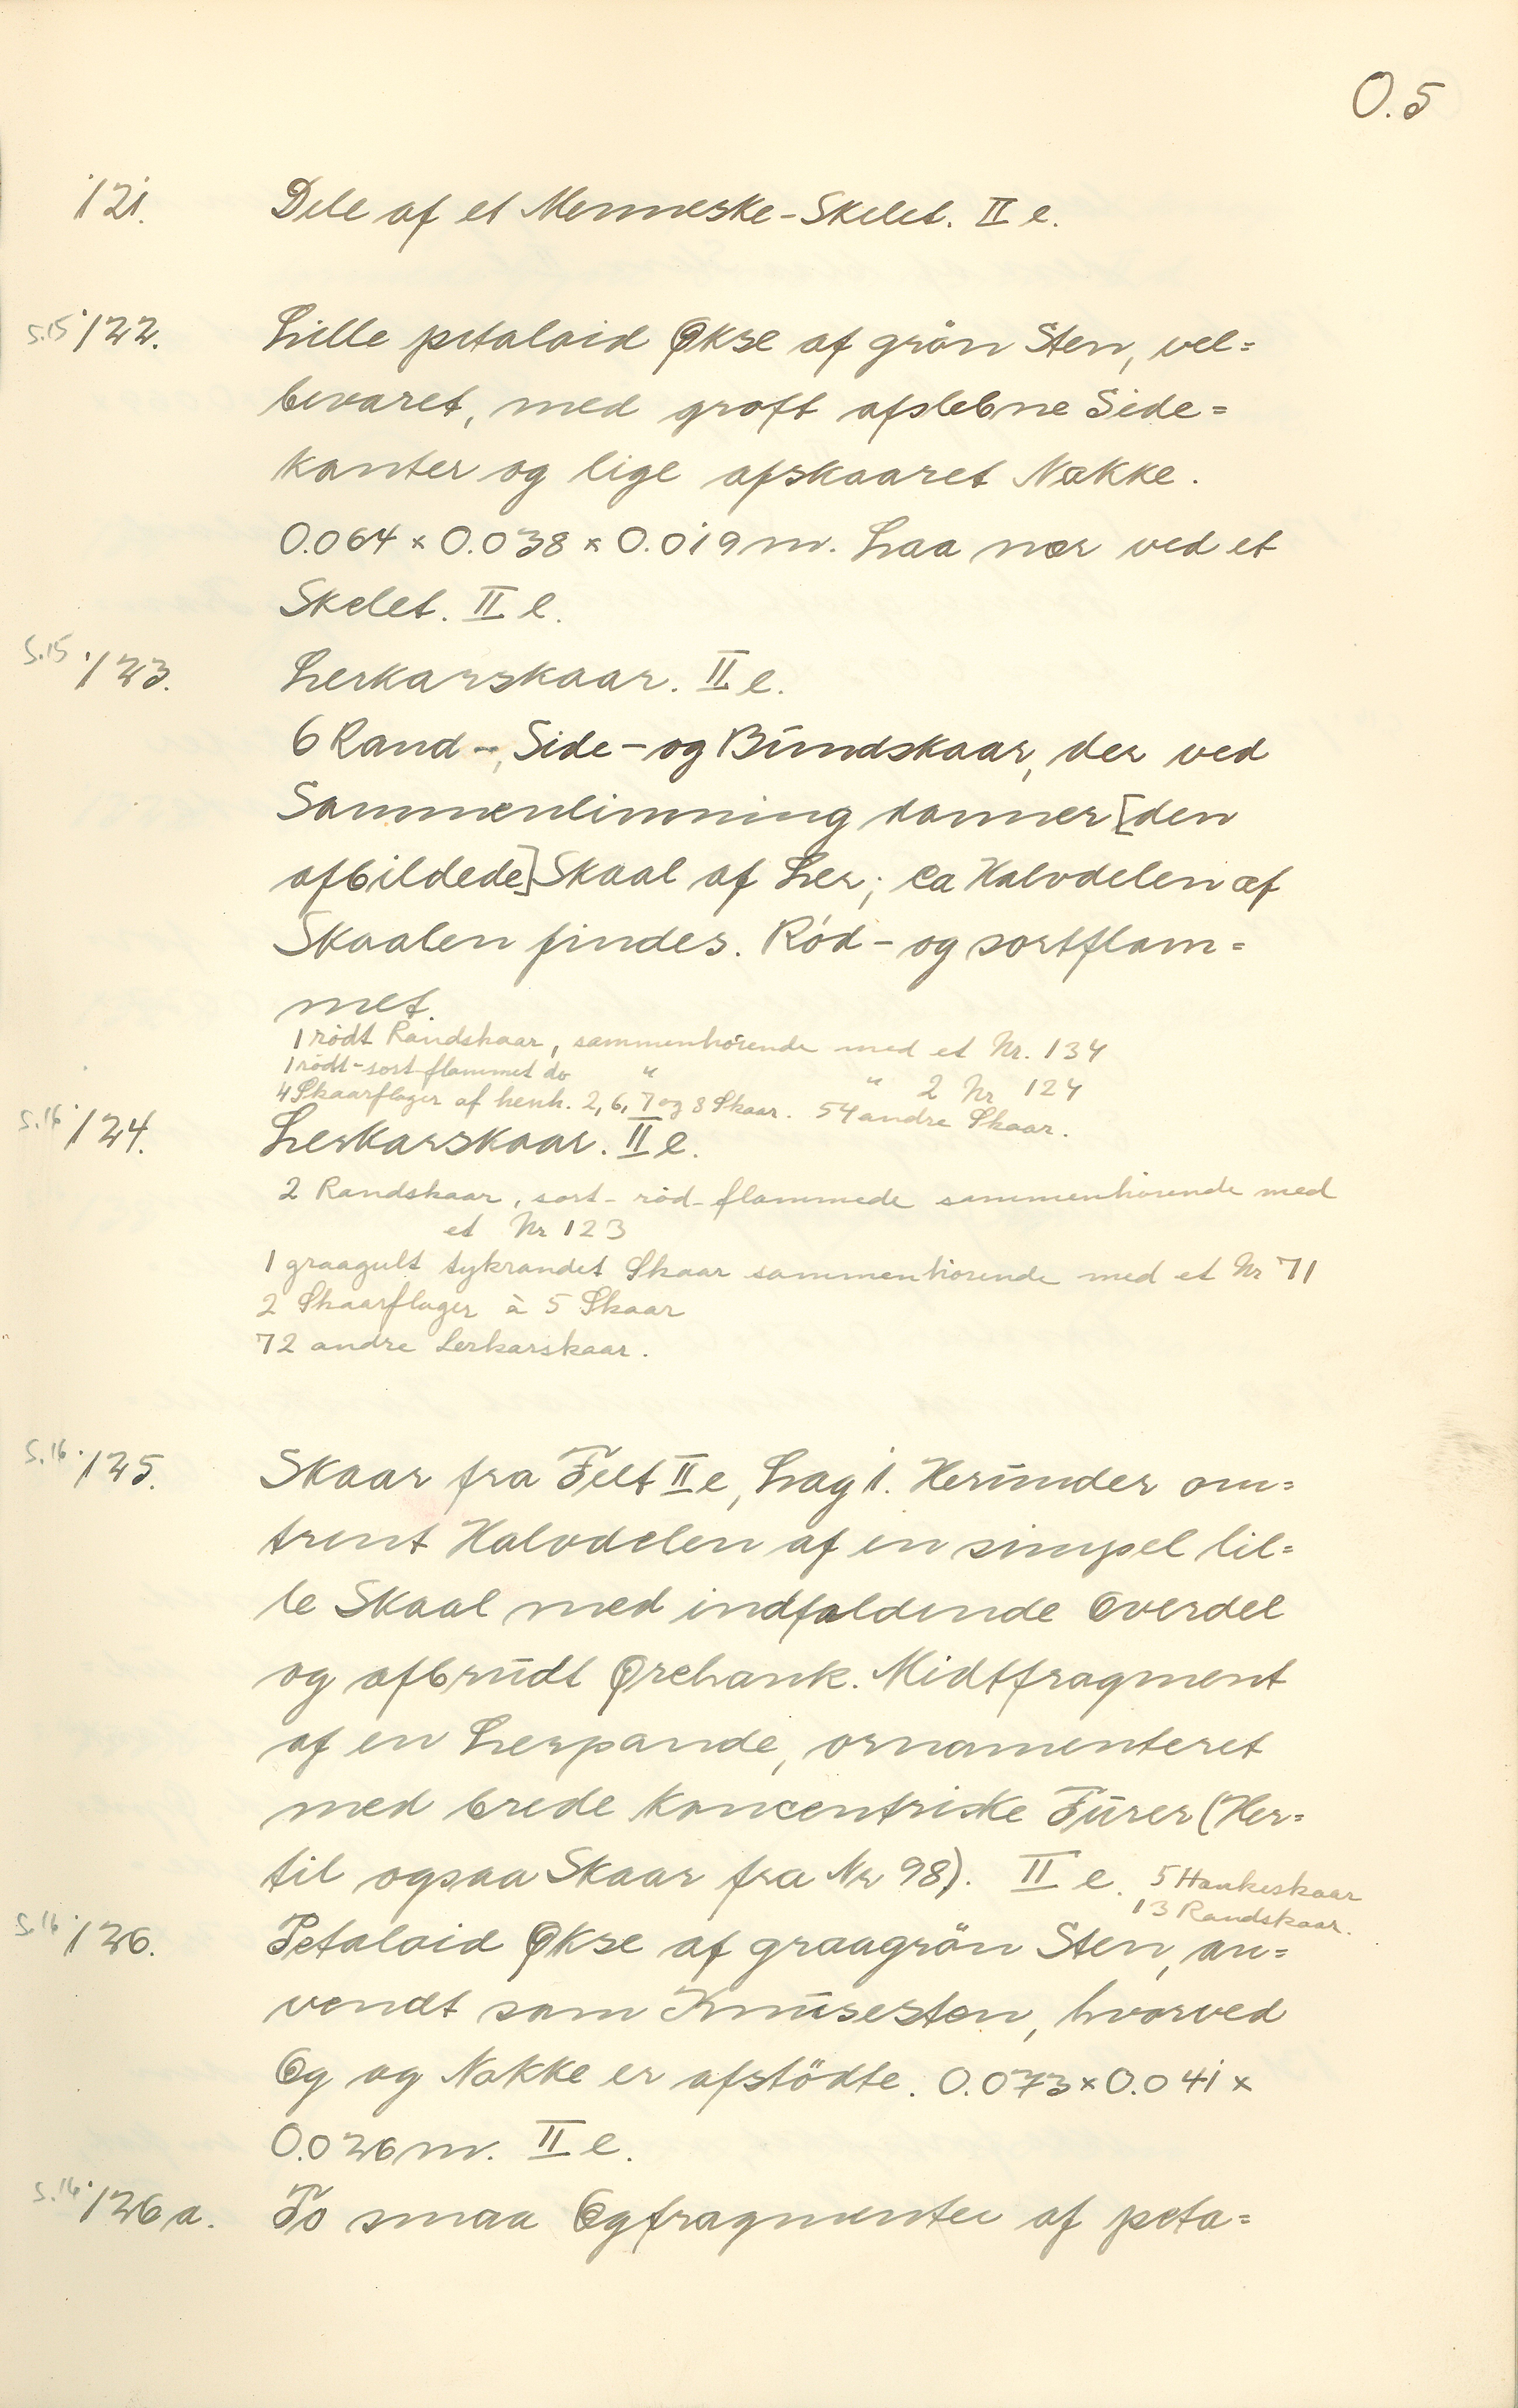 O.5
121. Dele af et Menneske-Skelet. II e.
S.15 122. Lille petaloid Økse af grön Sten, vel=
bevaret, med groft afslebne Side=
kanter og lige afskaaret Nakke.
0.064 x 0.038 x 0.019 m. Laa nær ved et
Skelet. II e.
S.15 123. Lerkarskaar. II e.
6 Rand-, Side- og Bŭndskaar, der ved
Sammenlimning danner [den
afbildede] Skaal af Ler; ca Halvdelen af
Skaalen findes. Ród- og sortflam=
met.
1 rödt Randskaar, sammenhörende med et Nr. 134
1 rödt-sort-flammet do " " 2 Nr 124
4 Skaarflager af henh. 2, 6, 7 og 8 Skaar. 54 andre Skaar.
S.16 124. Lerkarskaar. II e.
2 Randskaar, sort-röd-flammede sammenhörende med
et Nr 123
1 graagult tykrandet Skaar sammenhörende med et Nr 71
2 Skaarflager à 5 Skaar
72 andre Lerkarskaar.
S.16 125. Skaar fra Felt II e, Lag 1. Herŭnder om=
trent Halvdelen af en simpel lil=
le Skaal med indfaldende Overdel
og afbrŭdt Ørehank. Midtfragment
af en Lerpande, ornamenteret
med brede koncentriske Fŭrer (Her=
til ogsaa Skaar fra Nr 98). II e. 5 Hankeskaar
13 Randskaar.
S.16 126. Petaloid Økse af graagrön Sten, an=
vendt som Knŭsesten, hvorved
Eg og Nakke er afstödte. 0.073 x 0.041 x
0.026 m. II e.
S.16 126a. To smaa Egfragmenter af peta=